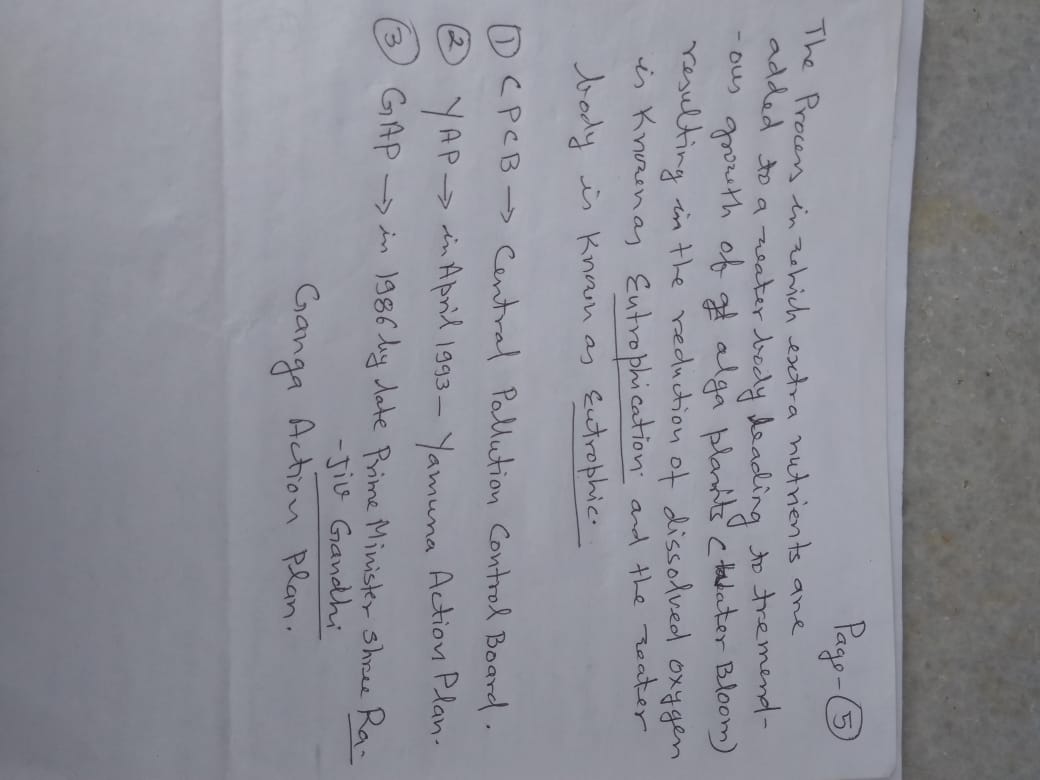 Page-⑤
The Process in which extra nutrients are
added to a water body leading to tremend-
-ous growth of alga plants (Water Bloom)
resulting in the reduction of dissolved oxygen
is Known as Eutrophication and the water
body is Known as Eutrophic.
① CPCB → Central Pollution Control Board.
② YAP → in April 1993 - Yamuna Action Plan.
③ GAP → in 1986 by late Prime Minister Shree Ra-
-jiv Gandhi
Ganga Action Plan.